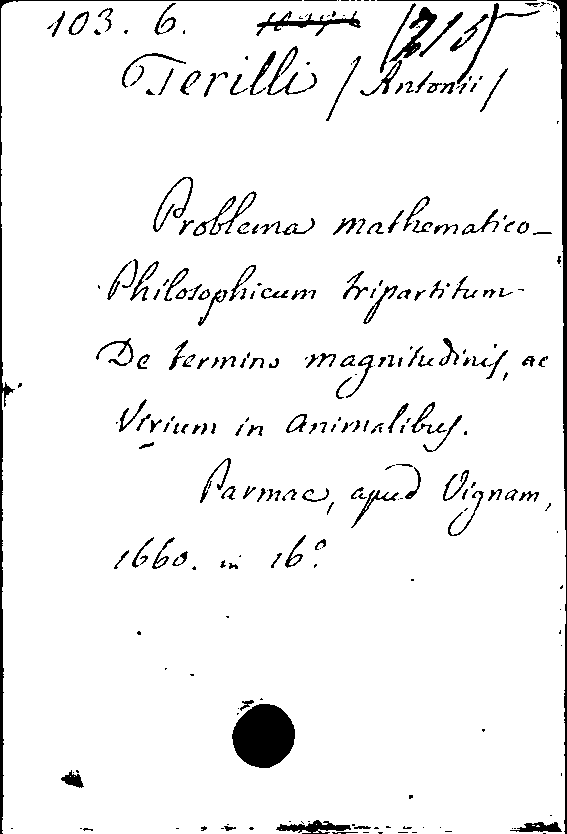 103. 6. (215)
Terilli / Antonii /
Problema mathematico-
Philosophicum tripartitum
De termino magnitudinis, ac
Virium in animalibus.
Parmae, apud Vignam,
1660. in 16º.